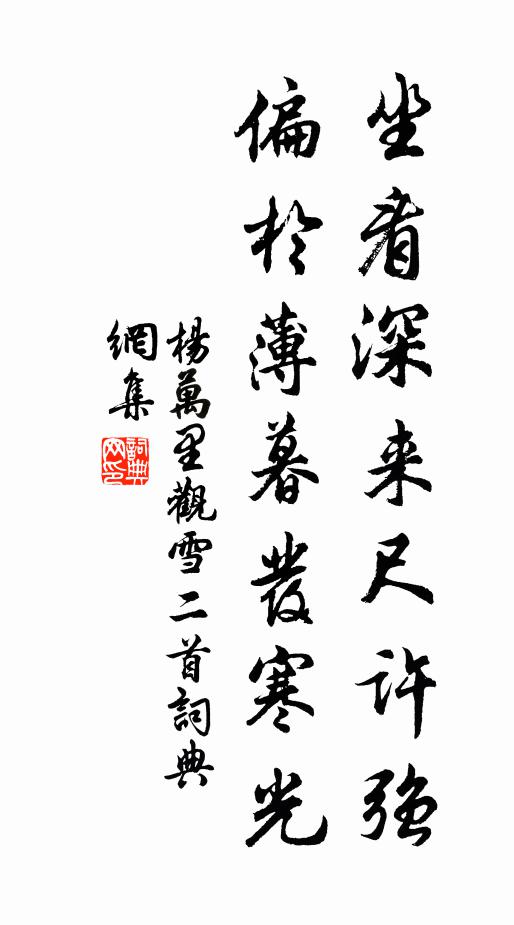 坐看深来尺许强
偏於薄暮發寒光
楊萬里觀雪二首詞典
網集
詞典
网印